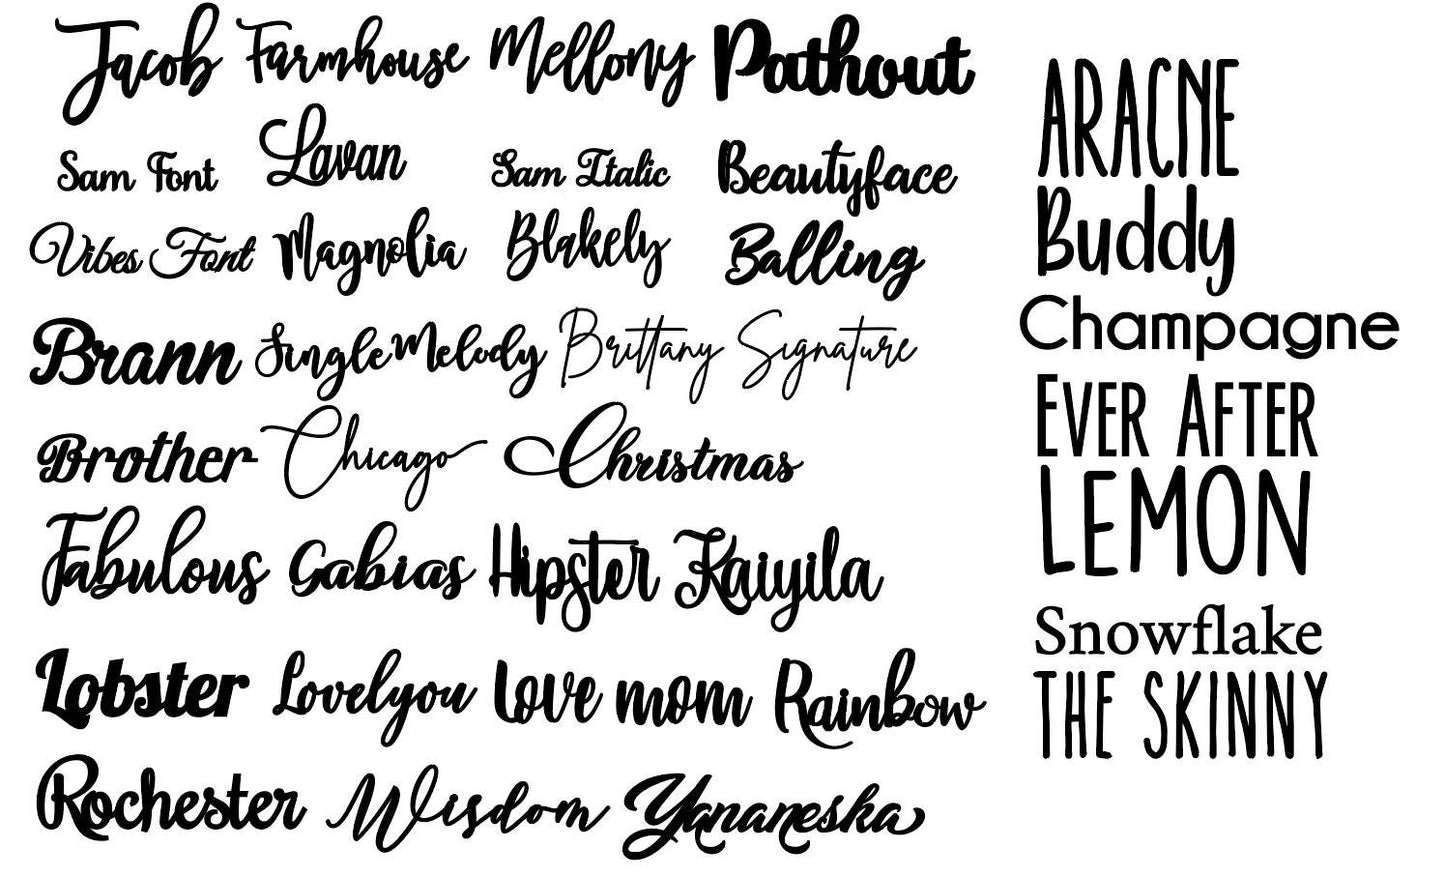 Jacob Farmhouse Mellony Pathout
Sam Font Lavan Sam Italic Beautyface
Vibes Font Magnolia Blakely Balling
Brann Single Melody Brittany Signature
Brother Chicago Christmas
Fabulous Gabias Hipster Kaiyila
Lobster Lovelyou Love mom Rainbow
Rochester Wisdom Yananeska
ARACNE
Buddy
Champagne
EVER AFTER
LEMON
Snowflake
THE SKINNY